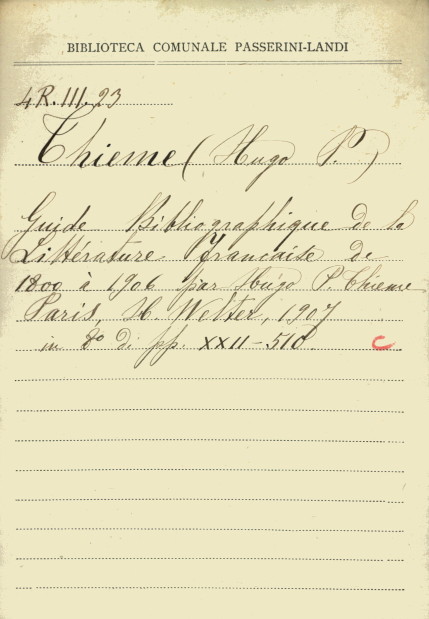 BIBLIOTECA COMUNALE PASSERINI-LANDI
4R.III.23
Thieme (Hugo P.)
Guide Bibliographique de la
Littérature Franchise de
1800 à 1906 par Hugo P. Thieme
Paris, H. Welter, 1907
in 8º di pp. XXII-510.
C